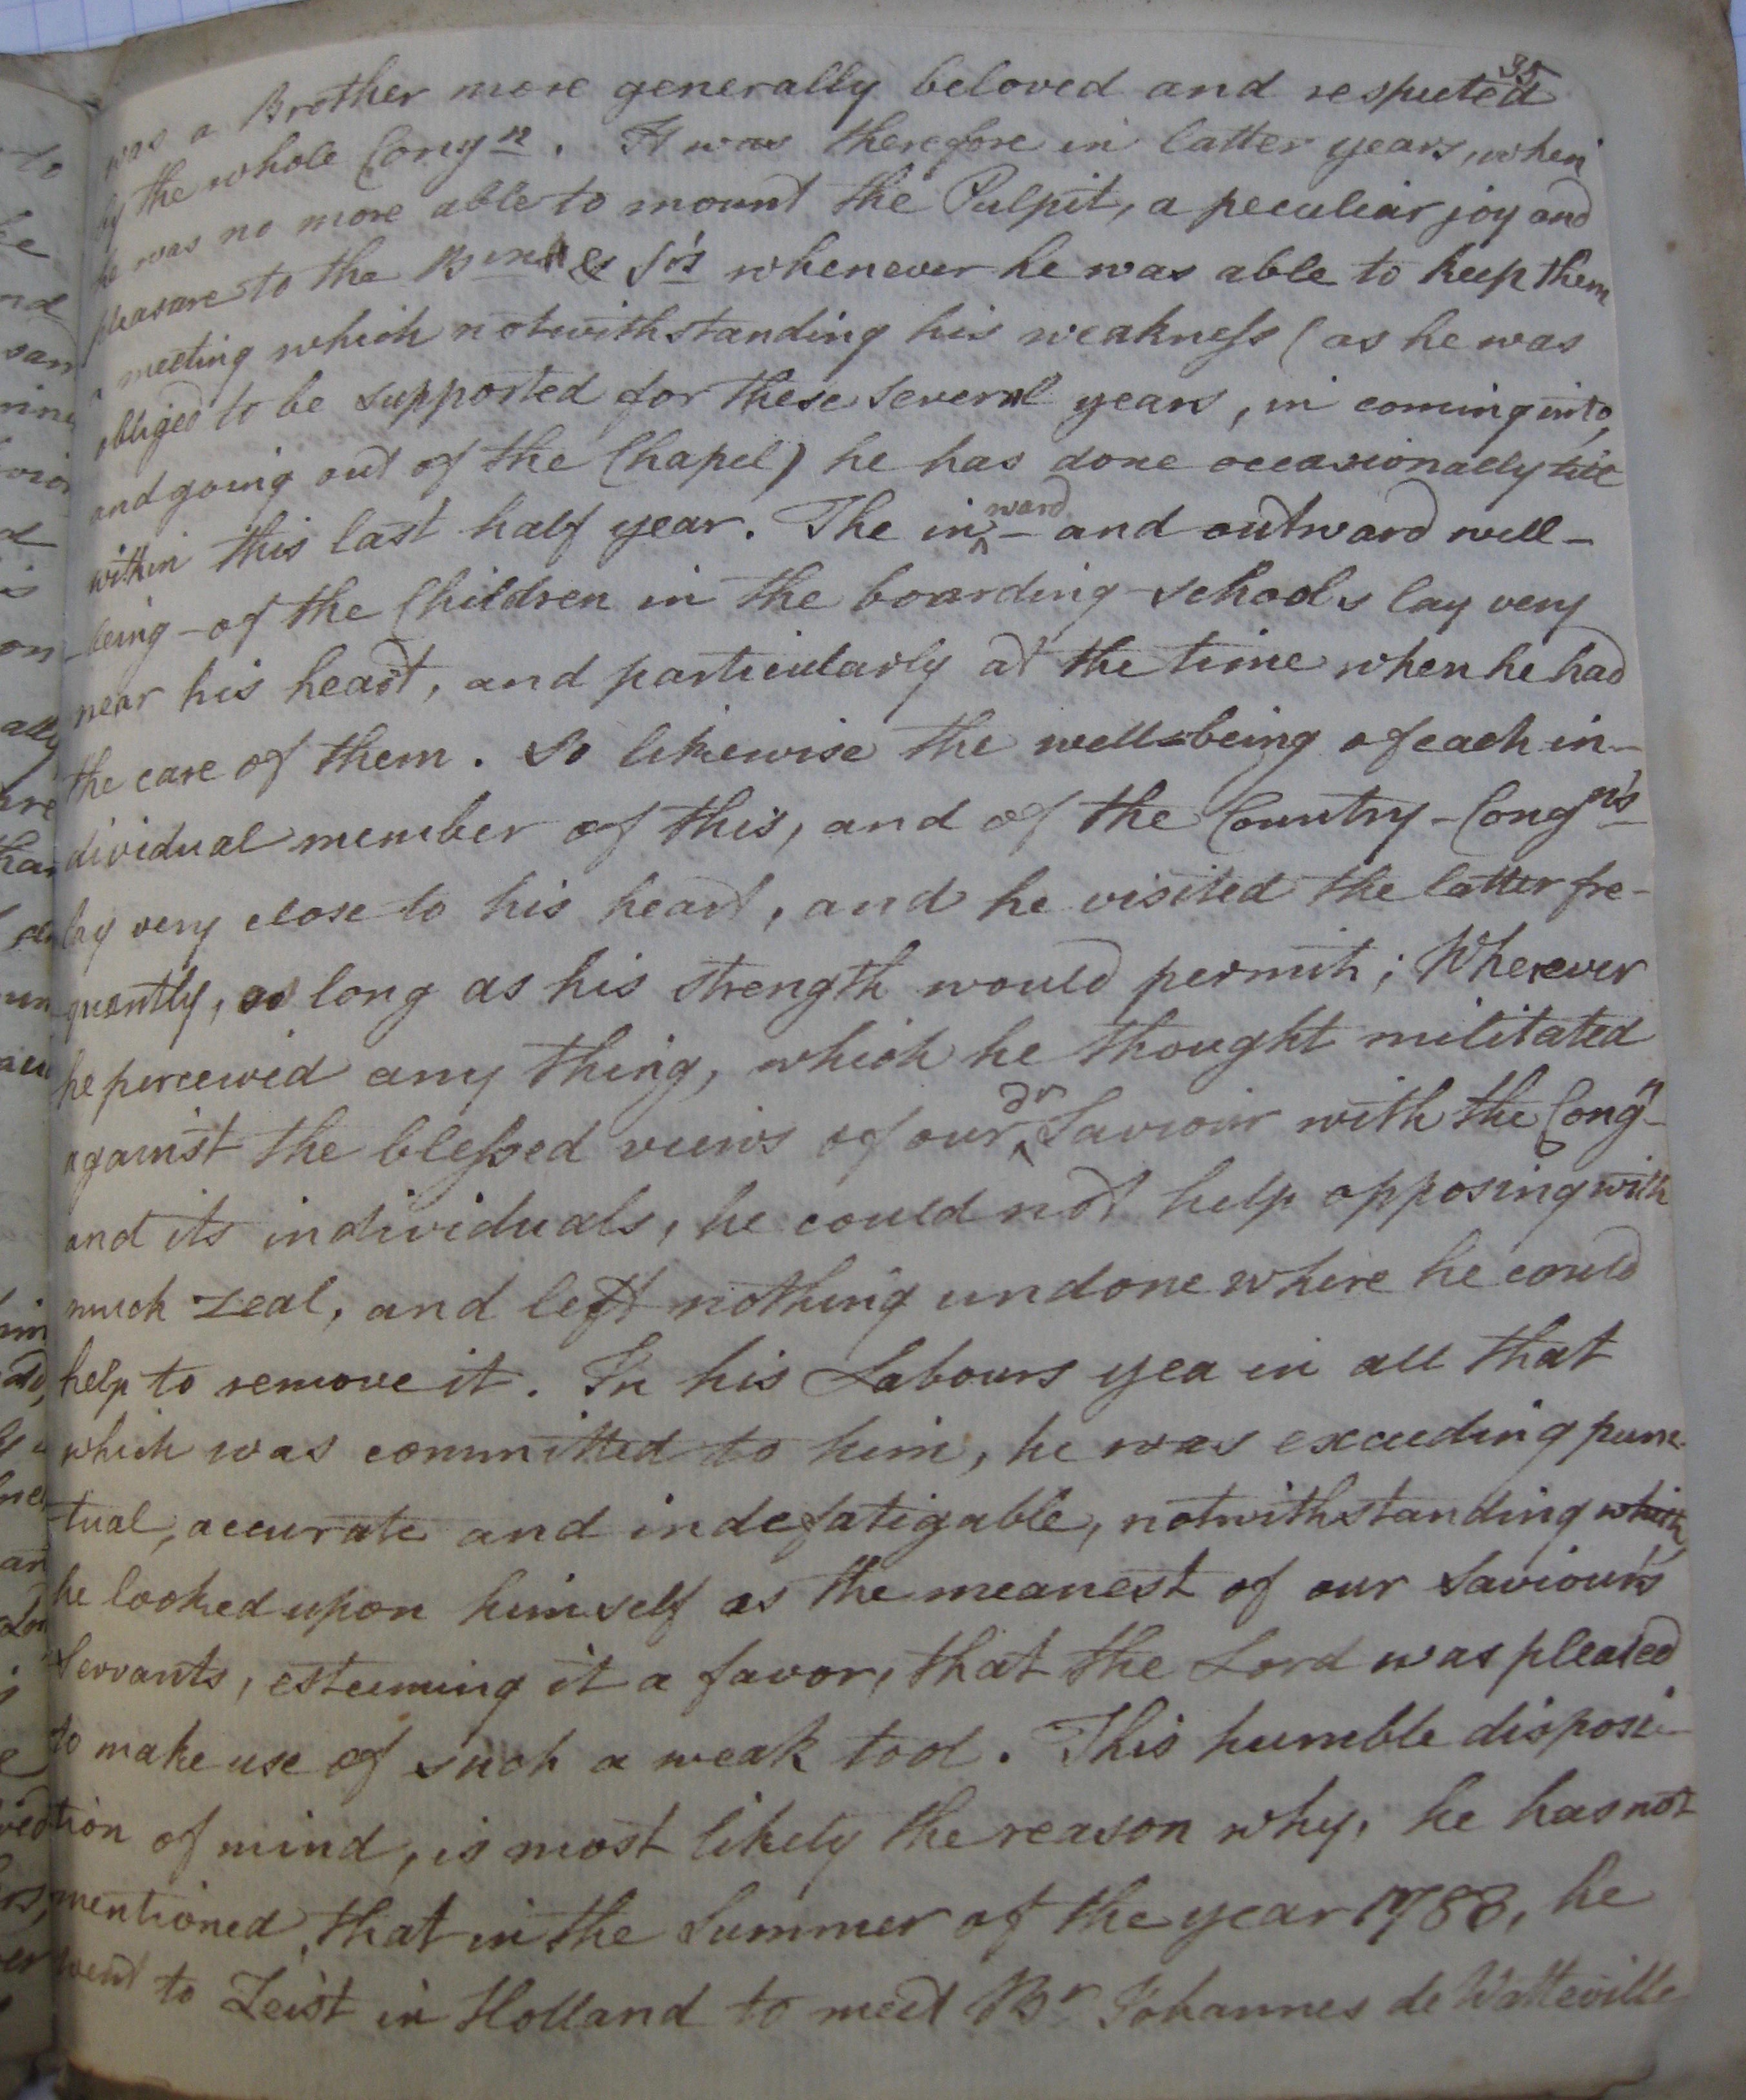 35
was a Brother more generally beloved and respected
by the whole Congn. It was therefore in latter years, when
he was no more able to mount the Pulpit, a peculiar joy and
pleasure to the Brn & Srs whenever he was able to keep them
a meeting which notwithstanding his weakness (as he was
obliged to be supported for these several years, in coming into,
and going out of the Chapel) he has done occasionally till
within this last half year. The inward- and outward well-
-being of the Children in the boarding-schools lay very
near his heart, and particularly at the time when he had
the care of them. So likewise the well-being of each in-
dividual member of this, and of the Country-Congns
lay very close to his heart, and he visited the latter fre-
quently, as long as his strength would permit; Wherever
he perceived any thing, which he thought militated
against the blessed views of our dr Saviour with the Congn
and its individuals, he could not help opposing with
much zeal, and left nothing undone where he could
help to remove it. In his Labours yea in all that
which was committed to him, he was exceeding punc-
-tual, accurate and indefatigable, notwithstanding which,
he looked upon himself as the meanest of our Saviour's
Servants, esteeming it a favor, that the Lord was pleased
to make use of such a weak tool. This humble disposi-
tion of mind, is most likely the reason why, he has not
mentioned, that in the Summer of the year 1788, he
went to Zeist in Holland to meet Br Johannes de Watteville